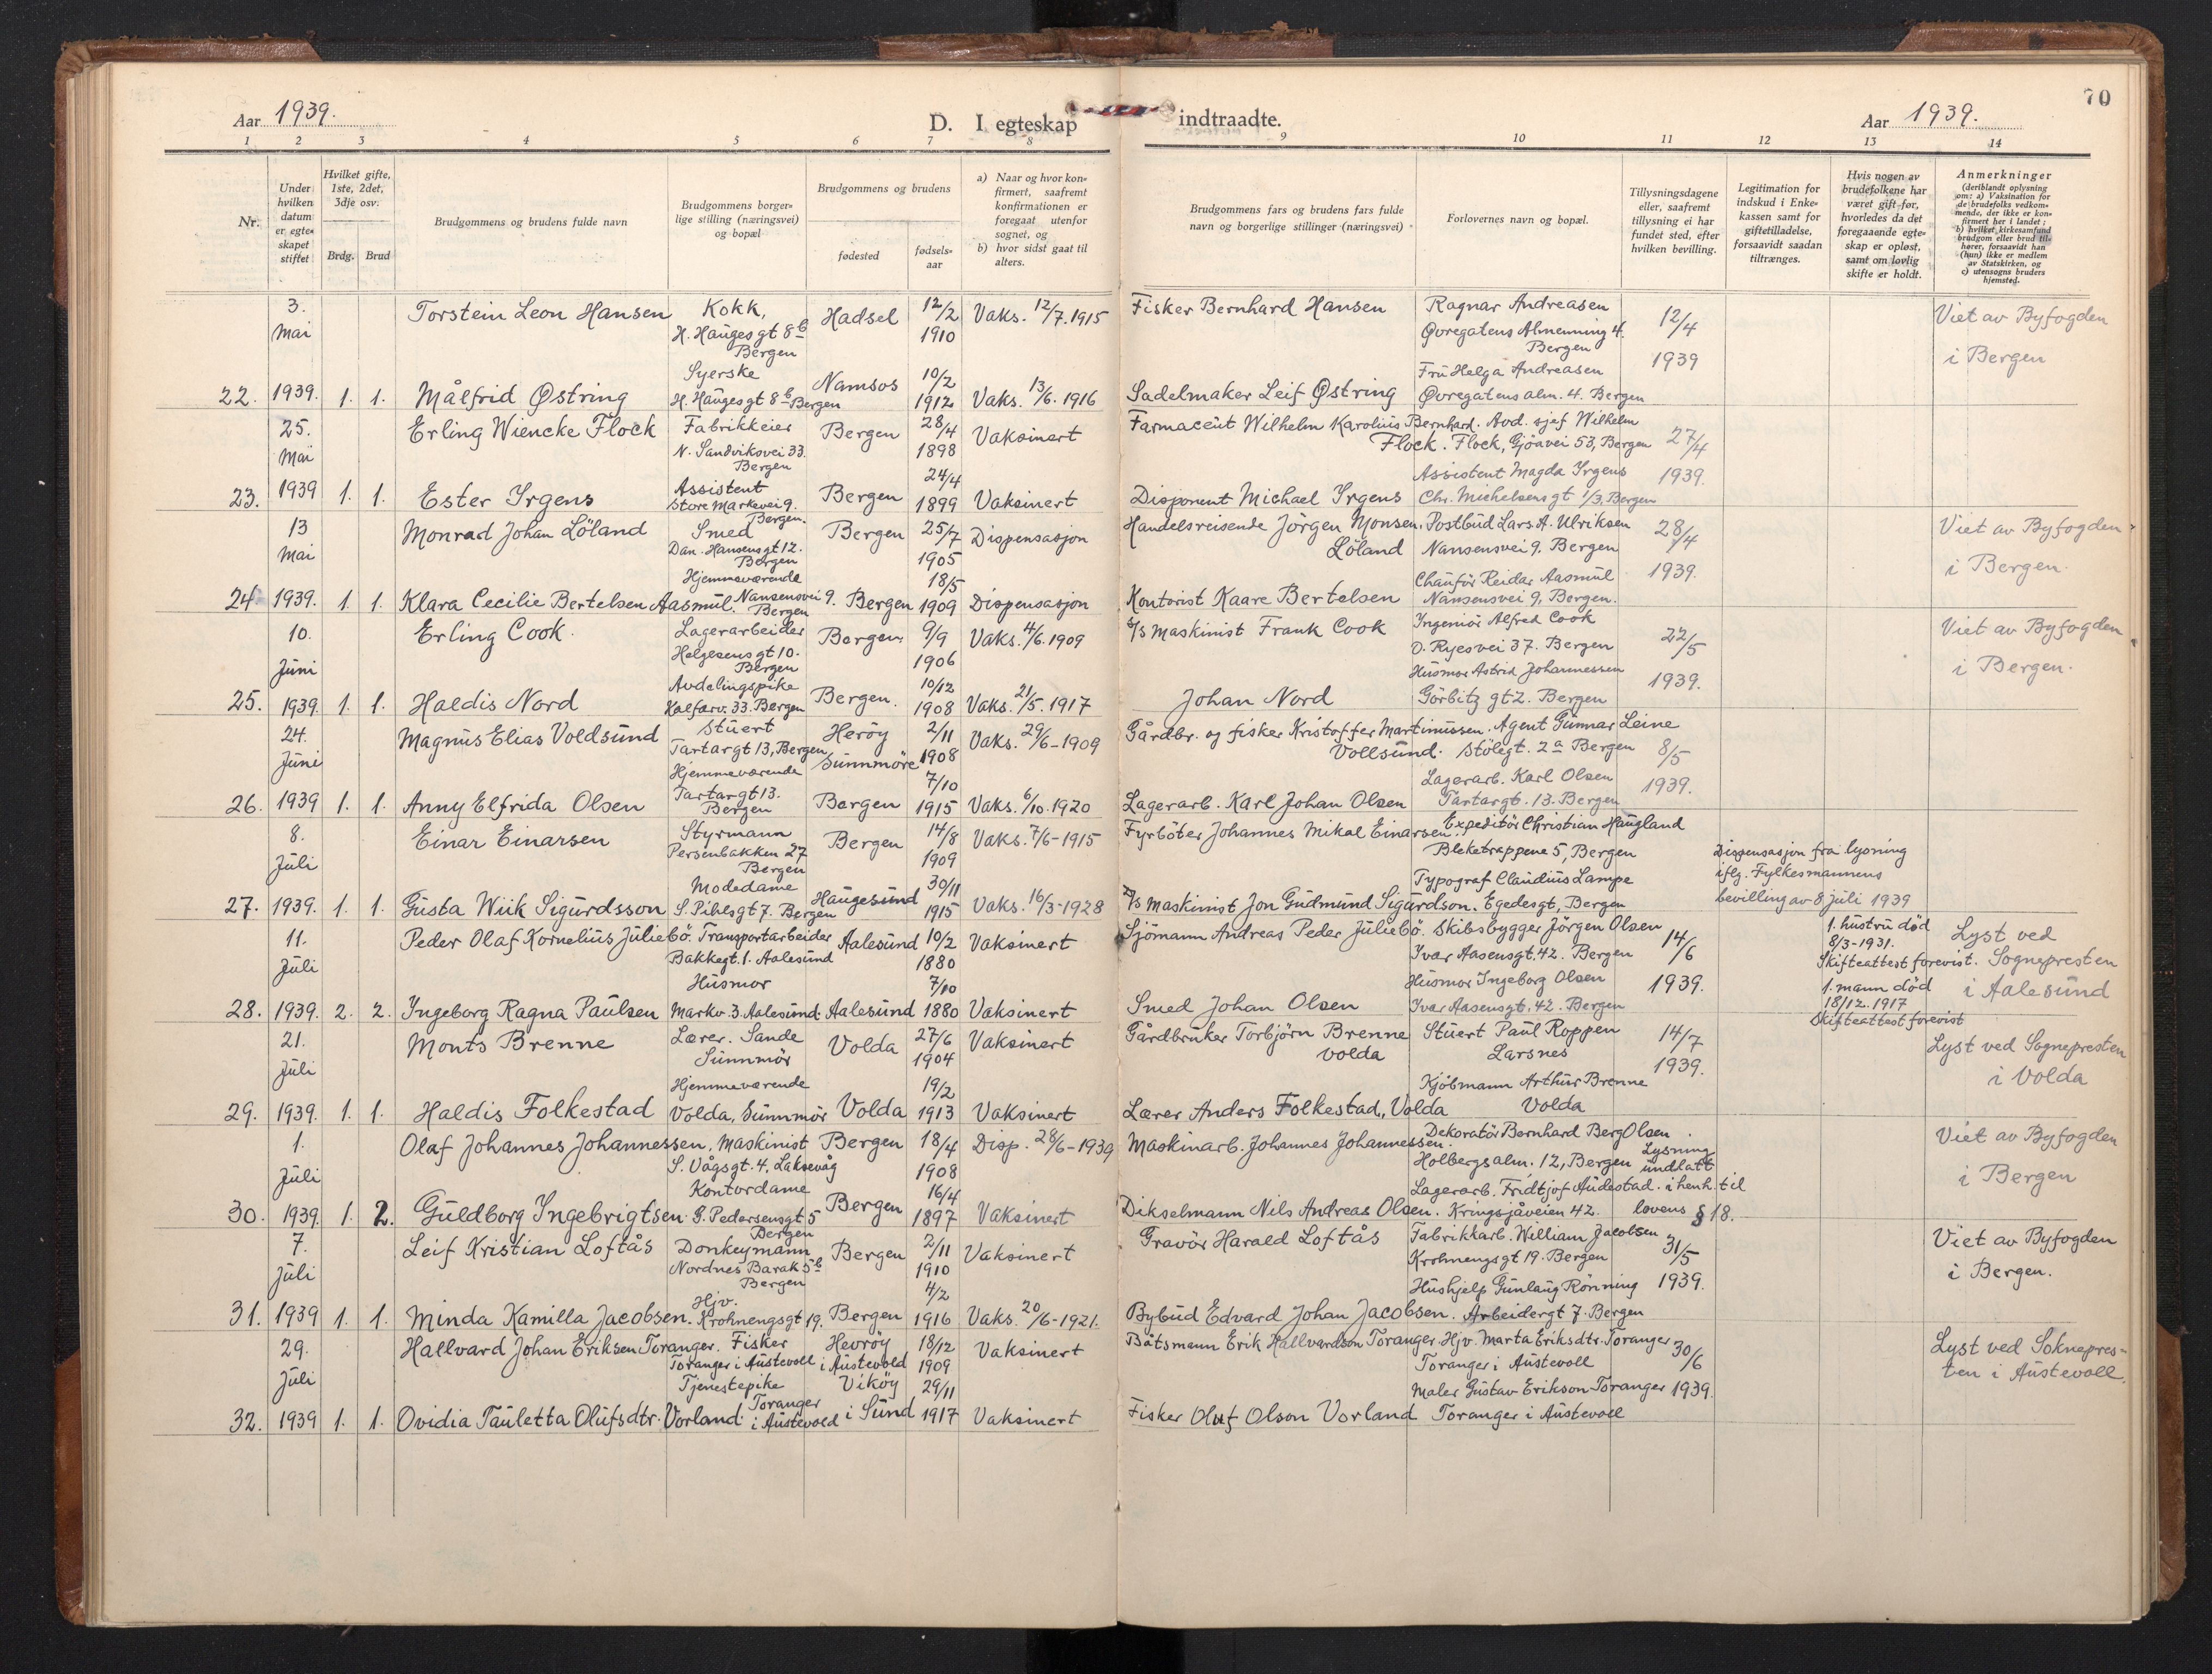 70
Aar 1939.
D. I egteskap indtraadte.
Aar 1939.
1 2 3 4 5 6 7 8 9 10 11 12 13 14
Nr.
Under hvilken datum er egteskapet stiftet
Hvilket gifte, 1ste, 2det, 3dje osv.
Brdg. Brud
Brudgommens og brudens fulde navn
Brudgommens borgerlige stilling (næringsvei) og bopæl
Brudgommens og brudens
fødested
fødselsaar
a) Naar og hvor konfirmert, saafremt konfirmationen er foregaat utenfor sognet, og
b) hvor sidst gaat til alters.
Brudgommens fars og brudens fars fulde navn og borgerlige stillinger (næringsvei)
Forlovernes navn og bopæl.
Tillysningsdagene eller, saafremt tillysning ei har fundet sted, efter hvilken bevilling.
Legitimation for indskud i Enkekassen samt for giftetilladelse, forsaavidt saadan tiltrænges.
Hvis nogen av brudefolkene har været gift før, hvorledes da det foregaaende egteskap er opløst, samt om lovlig skifte er holdt.
Anmerkninger
(deriblandt oplysning om: a) Vaksination for de brudefolks vedkommende, der ikke er konfirmert her i landet; b) hvilket kirkesamfund brudgom eller brud tilhører, forsaavidt han (hun) ikke er medlem av Statskirken, og c) utensogns bruders hjemsted.
22. 3. Mai 1939. 1. 1.
Torstein Leon Hansen Kokk, H. Hauges gt 8b Bergen Hadsel 12/2 1910 Vaks. 12/7. 1915
Fisker Bernhard Hansen Ragnar Andreasen Øvregatens Almenning 4. Bergen 12/4 1939 Viet av Byfogden i Bergen
Målfrid Østring Syerske H. Hauges gt 8b Bergen Namsos 10/2 1912 Vaks. 13/6. 1916
Sadelmaker Leif Østring Fru Helga Andreasen Øvregatens alm. 4. Bergen
23. 25. Mai 1939 1. 1.
Erling Wiencke Flock Fabrikkeier N. Sandviksvei 33. Bergen Bergen 28/4 1898 Vaksinert
Farmaceut Wilhelm Karolius Bernhard Flock. Avd. sjef Wilhelm Flock, Gjöavei 53, Bergen 27/4 1939.
Ester Irgens Assistent Store Markevei 9. Bergen. Bergen 24/4 1899 Vaksinert
Disponent Michael Irgens Assistent Magda Irgens Chr. Michelsens gt 1/3. Bergen
24 13 Mai 1939. 1. 1.
Monrad Johan Löland Smed Dan. Hansens gt 12. Bergen Bergen 25/7 1905 Dispensasjon
Handelsreisende Jörgen Monsen Löland Postbud Lars. A. Ulriksen Nansensvei 9. Bergen 28/4 1939. Viet av Byfogden i Bergen.
Klara Cecilie Bertelsen Aasmul. Hjemmeværende Nansensvei 9. Bergen Bergen 18/5 1909 Dispensasjon
Kontorist Kaare Bertelsen Chauför Reidar Aasmul Nansensvei 9, Bergen.
25. 10. Juni 1939. 1. 1.
Erling Cook. Lagerarbeider Helgesens gt 10. Bergen Bergen. 9/9 1906 Vaks. 4/6. 1909
S/S Maskinist Frank Cook Ingeniör Alfred Cook O. Ryesvei 37. Bergen 22/5 1939. Viet av Byfogden i Bergen.
Haldis Nord Avdelingspike Kalfarv. 33. Bergen Bergen. 10/12 1908 Vaks. 21/5. 1917
Johan Nord Husmor Astrid Johannessen Görbitz gt 2. Bergen
26. 24. Juni 1939 1. 1.
Magnus Elias Voldsund Stuert Tartargt 13, Bergen Heröy Sunnmöre 2/11 1908 Vaks. 29/6-1909
Gårdbr. og fisker Kristoffer Martinussen Vollsund. Agent Gunnar Leine Stölegt. 2a Bergen 8/5 1939.
Anny Elfrida Olsen Hjemmeværende Tartargt 13. Bergen Bergen 7/10 1915 Vaks. 6/10. 1920
Lagerarb. Karl Johan Olsen Lagerarb. Karl Olsen Tartargt. 13. Bergen
27. 8. Juli 1939. 1. 1.
Einar Einarsen Styrmann Persenbakken 27 Bergen Bergen 14/8 1909 Vaks. 7/6-1915
Fyrböter Johannes Mikal Einarsen. Expeditör Christian Haugland Bleketrappene 5, Bergen Dispensasjon fra lysning iflg. Fylkesmannens bevilling av 8 juli 1939
Gusta Wiik Sigurdsson Modedame S. Pihlsgt 7. Bergen Haugesund 30/11 1915 Vaks. 16/3-1928
S/S Maskinist Jon Gudmund Sigurdson. Typograf Claudius Lampe Egedesgt, Bergen
28. 11. Juli 1939. 2. 2.
Peder Olaf Kornelius Juliebö. Transportarbeider Bakkegt. 1. Aalesund Aalesund 10/2 1880 Vaksinert
Sjömann Andreas Peder Juliebö. Skibsbygger Jörgen Olsen Ivar Aasensgt. 42. Bergen 14/6 1939. 1. hustru död 8/3-1931. Skifteattest forevist. Lyst ved Sognepresten i Aalesund
Ingeborg Ragna Paulsen Husmor Markv. 3. Aalesund. Aalesund 7/10 1880 Vaksinert
Smed Johan Olsen Husmor Ingeborg Olsen Ivar Aasensgt. 42. Bergen 1. mann död 18/12. 1917 Skifteattest forevist
29. 21. Juli 1939. 1. 1.
Monts Brenne Lærer. Sande Sunnmör Volda 27/6 1904 Vaksinert
Gårdbruker Torbjörn Brenne Volda Stuert Paul Roppen Larsnes 14/7 1939. Lyst ved Sognepresten i Volda
Haldis Folkestad Hjemmeværende Volda, Sunnmör Volda 19/2 1913 Vaksinert
Lærer Anders Folkestad, Volda Kjöbmann Arthur Brenne Volda
30. 1. Juli 1939. 1. 2.
Olaf Johannes Johannessen. Maskinist S. Vågsgt. 4, Laksevåg Bergen 18/4 1908 Disp. 28/6-1939
Maskinarb. Johannes Johannessen. Dekoratör Bernhard Berg Olsen Holbergsalm. 12, Bergen Lysning undlatt i henh. til lovens § 18. Viet av Byfogden i Bergen
Guldborg Ingebrigtsen. Kontordame G. Pedersensgt 5 Bergen Bergen 16/4 1897 Vaksinert
Dikselmann Nils Andreas Olsen. Lagerarb. Fridtjof Audestad. Kringsjåveien 42.
31. 7. Juli 1939 1. 1.
Leif Kristian Loftås Donkeymann Nordnes Barak 5b Bergen Bergen 2/11 1910 Vaksinert
Gravör Harald Loftås Fabrikkarb. William Jacobsen Krohnengsgt 19. Bergen 31/5 1939. Viet av Byfogden i Bergen.
Minda Kamilla Jacobsen. Hjv. Krohnengsgt 19. Bergen 4/2 1916 Vaks. 20/6-1921.
Bybud Edvard Johan Jacobsen. Hushjelp Gunlaug Rönning Arbeidergt 7. Bergen
32. 29. Juli 1939 1. 1.
Hallvard Johan Eriksen Toranger. Fisker Toranger i Austevoll Hevröy i Austevold 18/12 1909 Vaksinert
Båtsmann Erik Hallvardson Toranger. Hjv. Marta Eriksdtr. Toranger Toranger i Austevoll 30/6 1939. Lyst ved Soknepresten i Austevoll.
Ovidia Tauletta Olufsdtr. Vorland. Tjenestepike Toranger i Austevold Viköy i Sund 29/11 1917 Vaksinert
Fisker Oluf Olson Vorland Maler Gustav Erikson Toranger Toranger i Austevoll